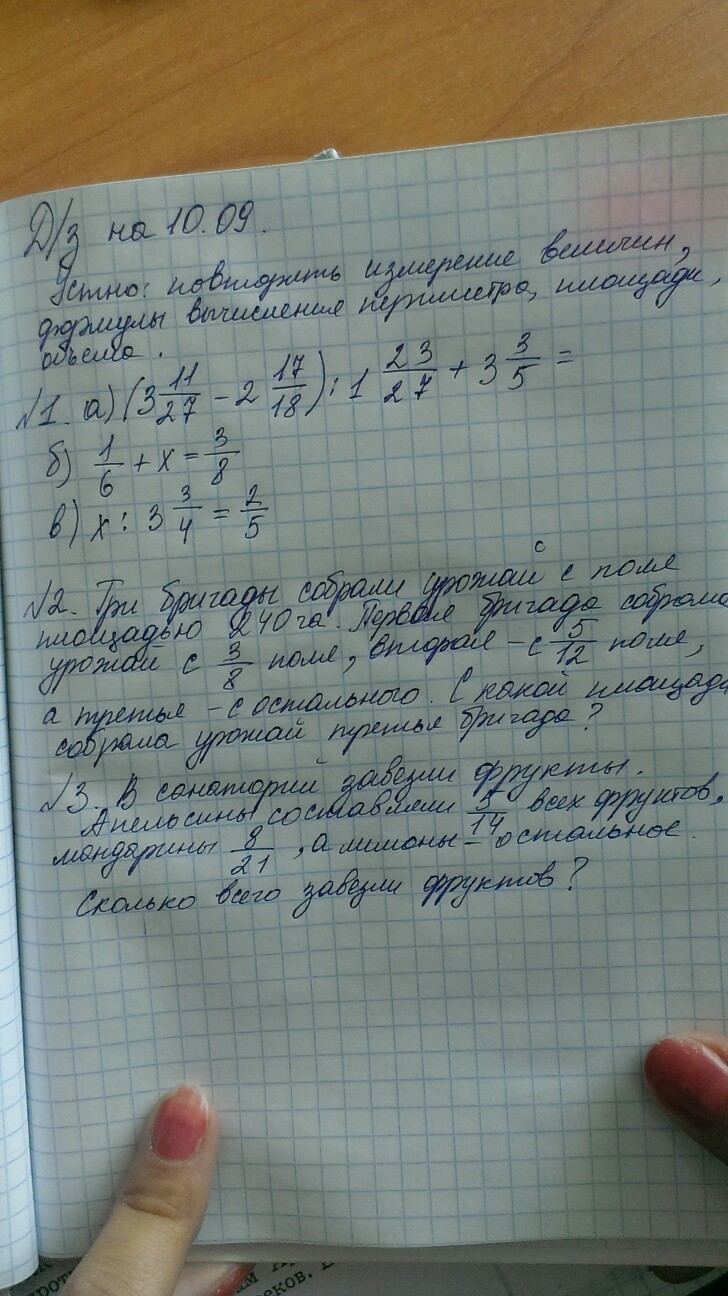 Д/з на 10.09.
Устно: повторить измерение величин,
формулы вычисления периметра, площади,
объема.
№1. а) (3 11/27 - 2 17/18) : 1 23/27 + 3 3/5 =
б) 1/6 + x = 3/8
в) x : 3 3/4 = 2/5
с
№2. Три бригады собрали урожай с поля
площадью 240 га. Первая бригада собрала
урожай с 3/8 поля, вторая - с 5/12 поля,
а третья - с остального. С какой площади
собрала урожай третья бригада?
№3. В санаторий завезли фрукты.
Апельсины составляли 5/14 всех фруктов,
мандарины 8/21, а лимоны - остальное.
Сколько всего завезли фруктов?